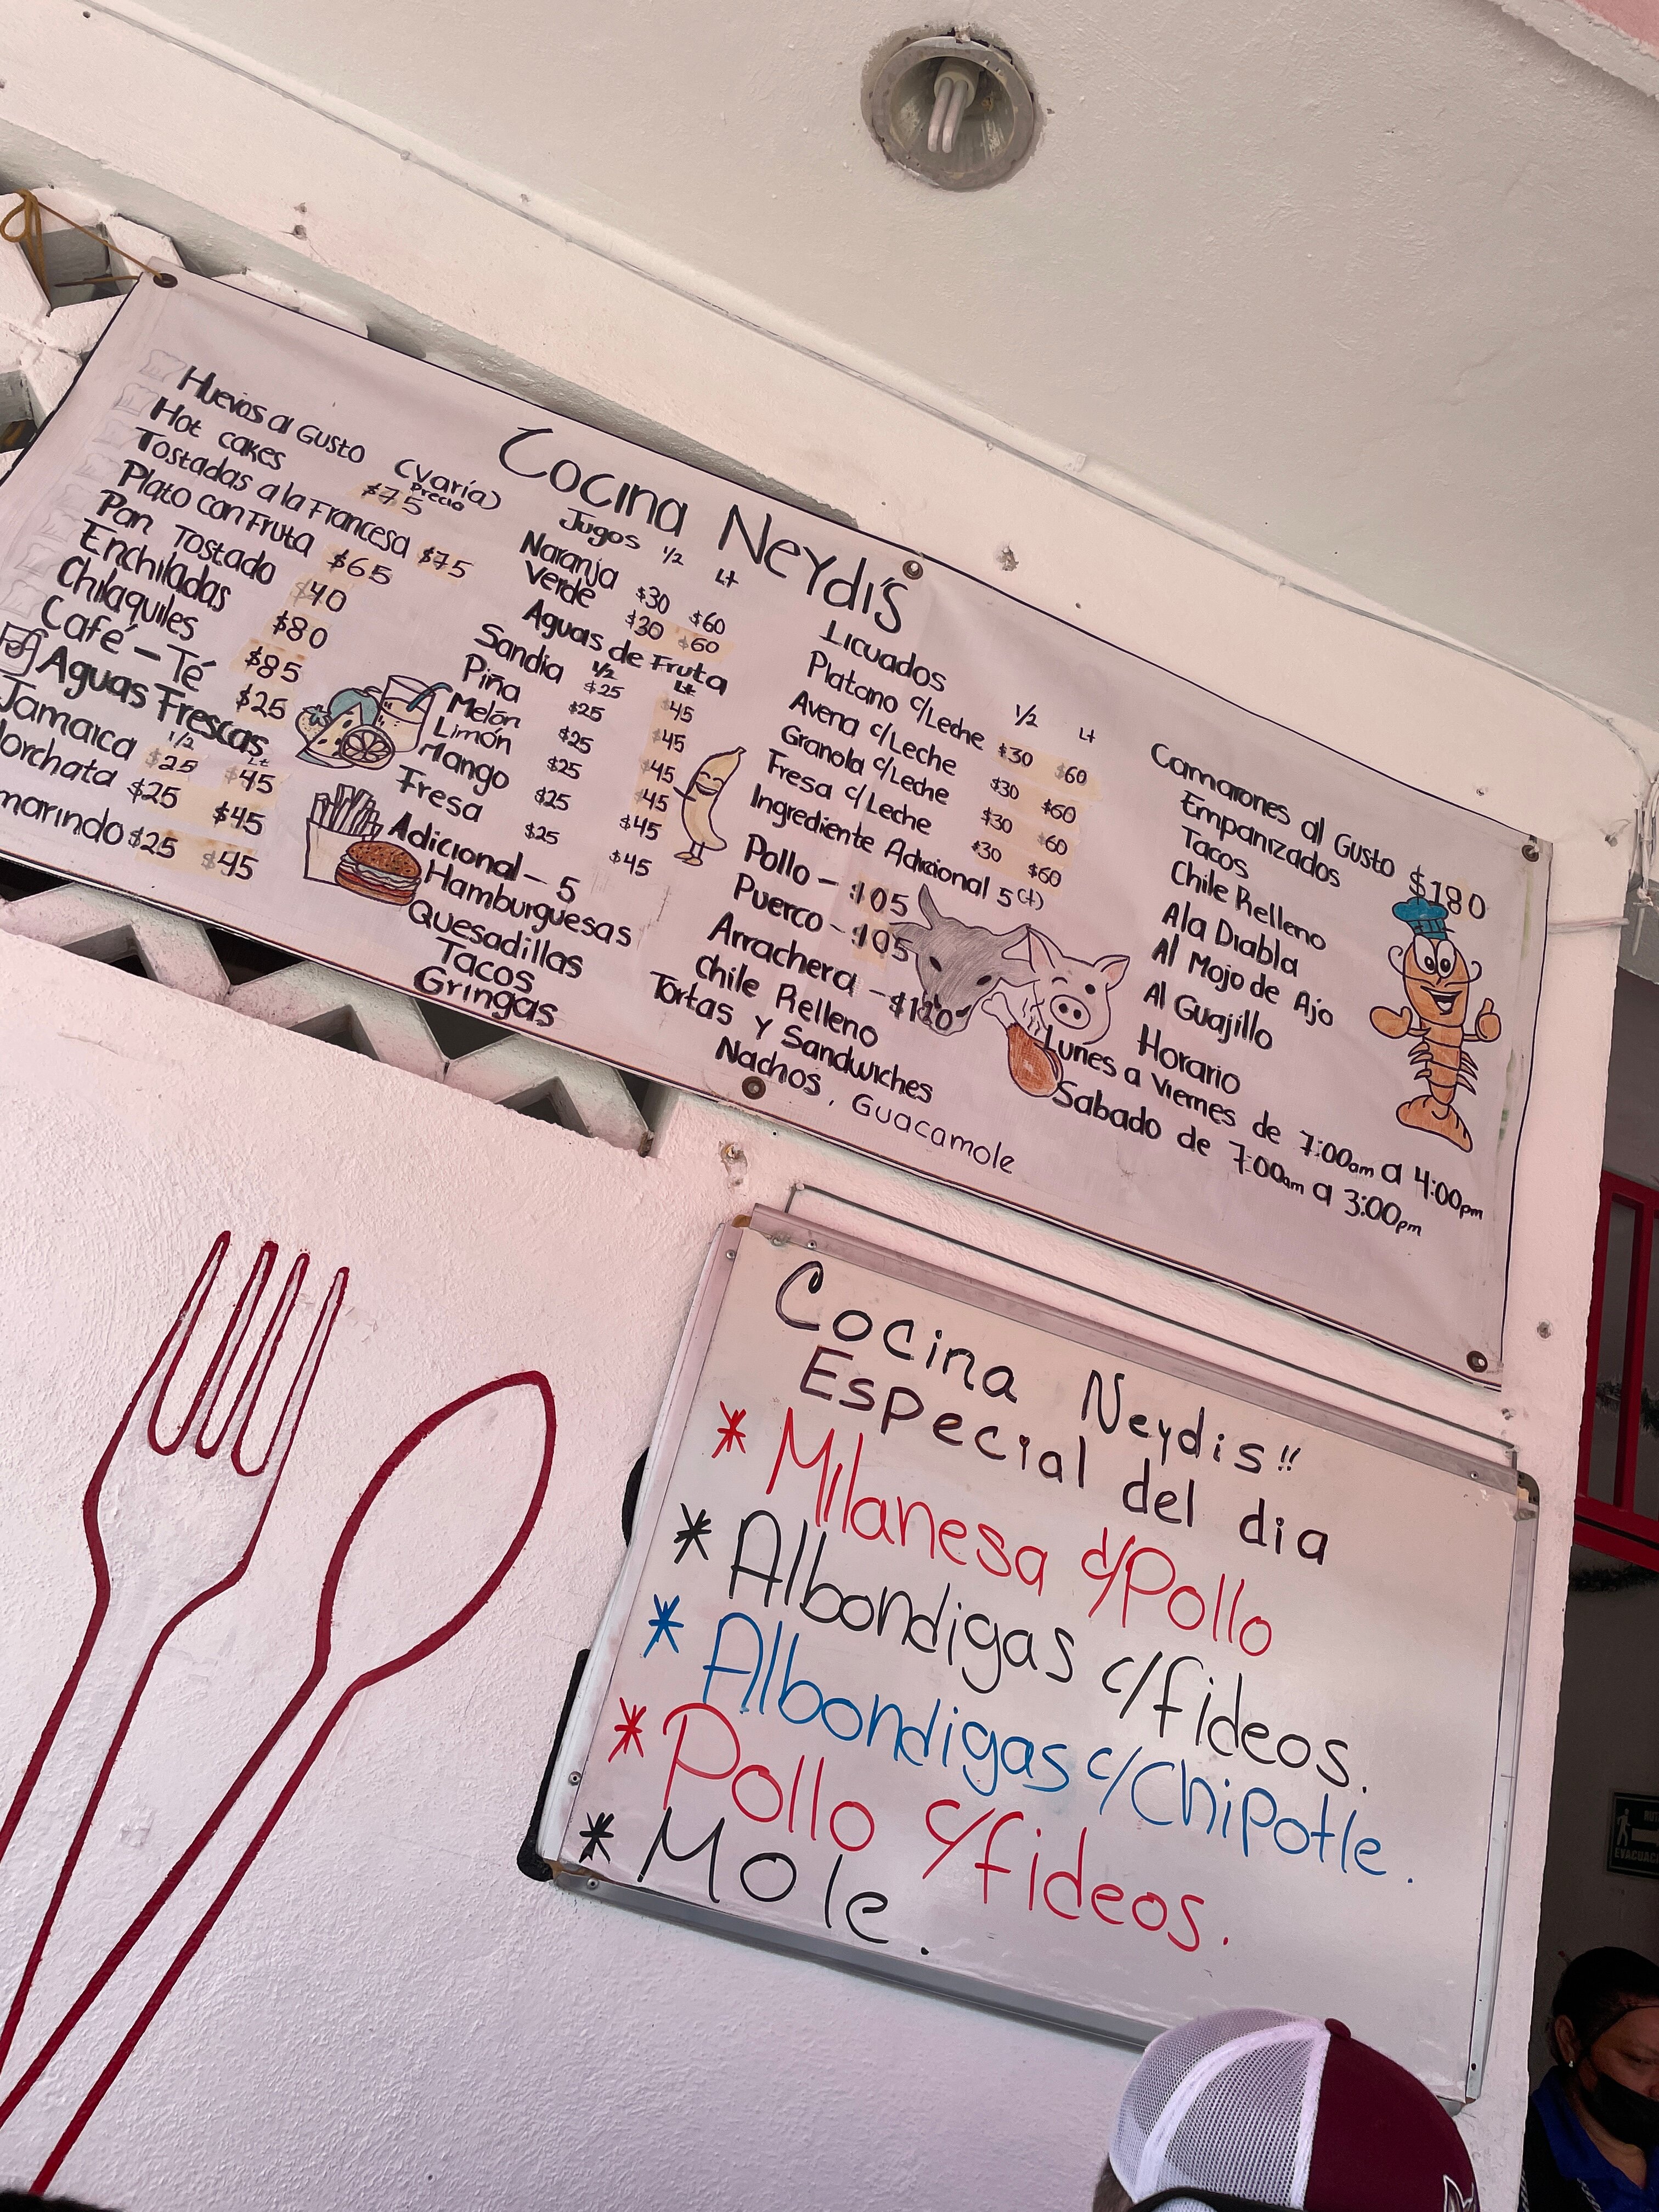 Cocina Neydi's
Huevos al Gusto (varía)
Precio
Hot cakes $75
Tostadas a la Francesa $75
Plato con Fruta $65
Pan Tostado $40
Enchiladas $80
Chilaquiles $85
Café - Té $25
Aguas Frescas
1/2 Lt
Jamaica $25 $45
Horchata $25 $45
marindo $25 $45
Jugos 1/2 Lt
Naranja $30 $60
Verde $30 $60
Aguas de Fruta
1/2 Lt
Sandia $25 $45
Piña $25 $45
Melón $25 $45
Limón $25 $45
Mango $25 $45
Fresa $25 $45
Adicional - 5
Hamburguesas
Quesadillas
Tacos
Gringas
Licuados 1/2 Lt
Platano c/Leche $30 $60
Avena c/Leche $30 $60
Granola c/Leche $30 $60
Fresa c/Leche $30 $60
Ingrediente Adicional 5 (+)
Pollo - $105
Puerco - $105
Arrachera - $120
Chile Relleno
Tortas y Sandwiches
Nachos, Guacamole
Camarones al Gusto $180
Empanizados
Tacos
Chile Relleno
Ala Diabla
Al Mojo de Ajo
Al Guajillo
Horario
Lunes a Viernes de 7:00am a 4:00pm
Sabado de 7:00am a 3:00pm
Cocina Neydis!!
Especial del dia
* Milanesa d/Pollo
* Albondigas c/fideos.
* Albondigas c/Chipotle.
* Pollo c/fideos.
* Mole.